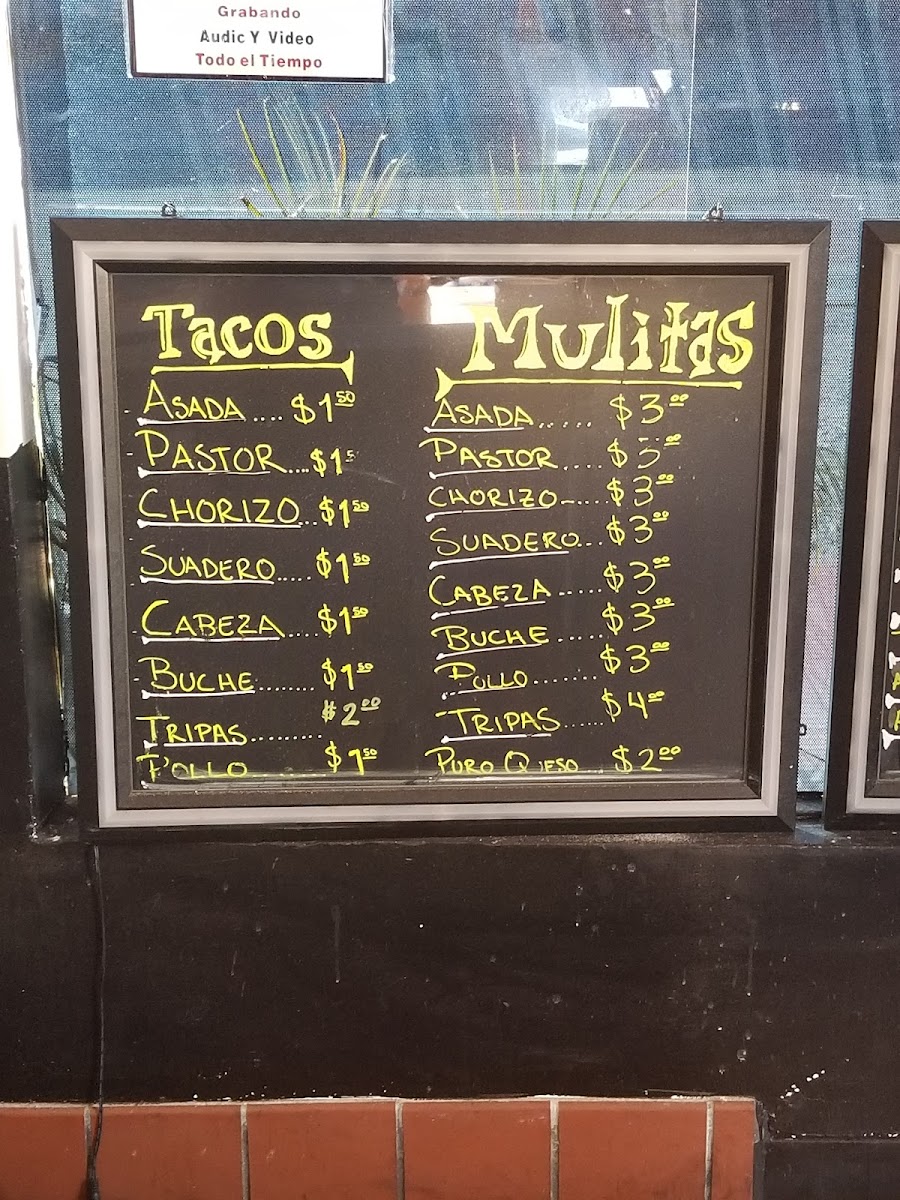 Grabando
Audic Y Video
Todo el Tiempo
Tacos
ASADA .... $1.50
PASTOR .... $1.5
CHORIZO ... $1.50
SUADERO ..... $1.50
CABEZA .... $1.50
BUCHE ....... $1.50
TRIPAS ......... $2.00
POLLO ........ $1.50
Mulitas
ASADA ...... $3.00
PASTOR .... $3.00
CHORIZO ..... $3.00
SUADERO ... $3.00
CABEZA ..... $3.00
BUCHE ...... $3.00
POLLO ....... $3.00
TRIPAS ..... $4.00
PURO QUESO .. $2.00